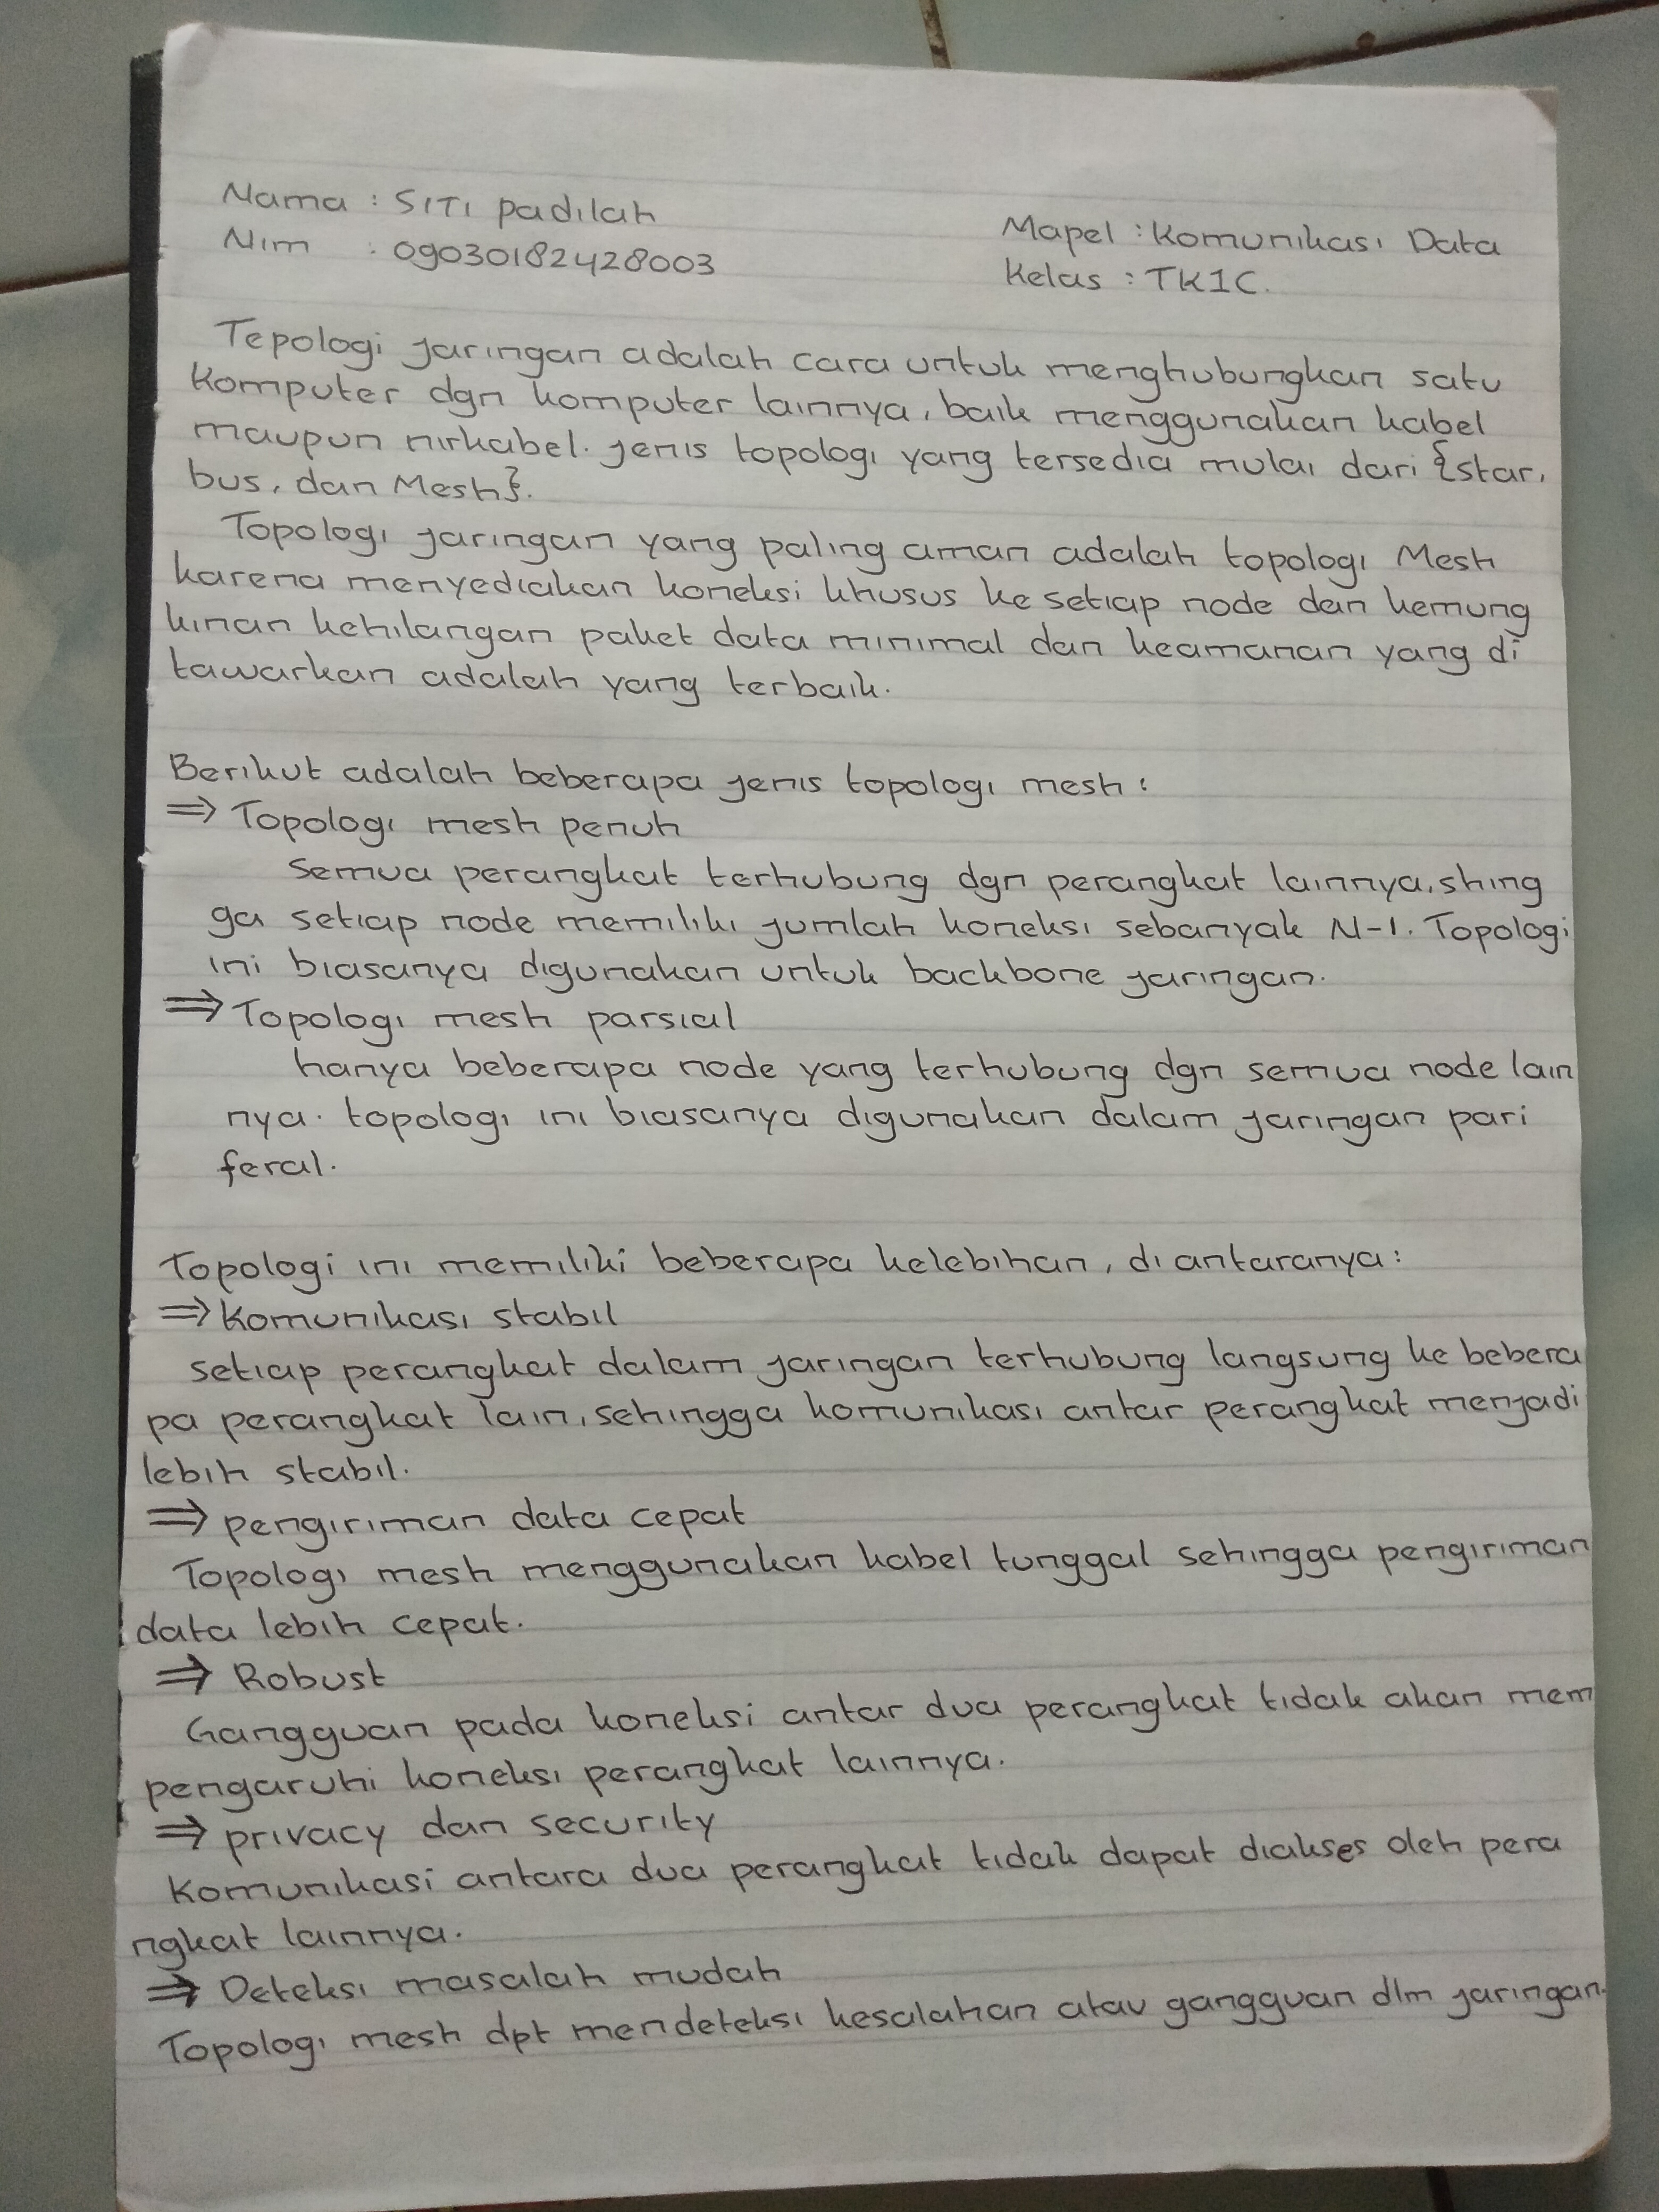 Nama : SITI padilah
Nim : 09030182428003
Mapel : Komunikasi Data
Kelas : TK1C.
Tepologi jaringan adalah cara untuk menghubungkan satu
Komputer dgn komputer lainnya, baik menggunakan kabel
maupun nirkabel. jenis topologi yang tersedia mulai dari {star,
bus, dan Mesh}.
Topologi jaringan yang paling aman adalah topologi Mesh
karena menyediakan koneksi khusus ke setiap node dan kemung
kinan kehilangan paket data minimal dan keamanan yang di
tawarkan adalah yang terbaik.
Berikut adalah beberapa jenis topologi mesh :
⇒ Topologi mesh penuh
Semua perangkat terhubung dgn perangkat lainnya, shing
ga setiap node memiliki jumlah koneksi sebanyak N-1. Topologi
ini biasanya digunakan untuk backbone jaringan.
⇒ Topologi mesh parsial
hanya beberapa node yang terhubung dgn semua node lain
nya. topologi ini biasanya digunakan dalam jaringan pari
feral.
Topologi ini memiliki beberapa kelebihan, di antaranya :
⇒ Komunikasi stabil
setiap perangkat dalam jaringan terhubung langsung ke bebera
pa perangkat lain, sehingga komunikasi antar perangkat menjadi
lebih stabil.
⇒ pengiriman data cepat
Topologi mesh menggunakan kabel tunggal sehingga pengiriman
data lebih cepat.
⇒ Robust
Gangguan pada koneksi antar dua perangkat tidak akan mem
pengaruhi koneksi perangkat lainnya.
⇒ privacy dan security
Komunikasi antara dua perangkat tidak dapat diakses oleh pera
ngkat lainnya.
⇒ Deteksi masalah mudah
Topologi mesh dpt mendeteksi kesalahan atau gangguan dlm jaringan.